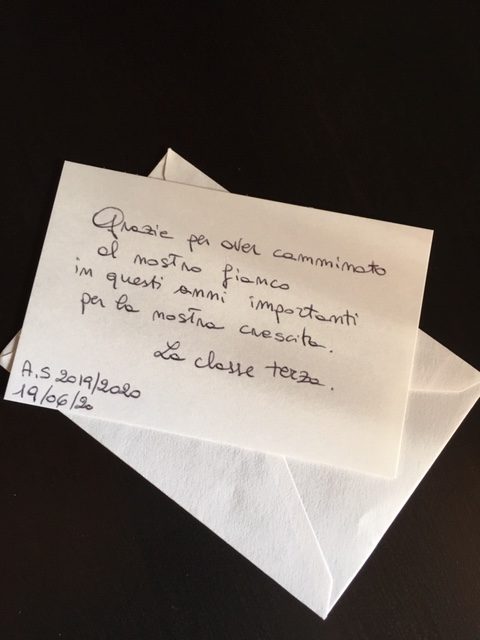 Grazie per aver camminato
al nostro fianco
in questi anni importanti
per la nostra crescita.
La classe terza.
A.S 2019/2020
19/06/20